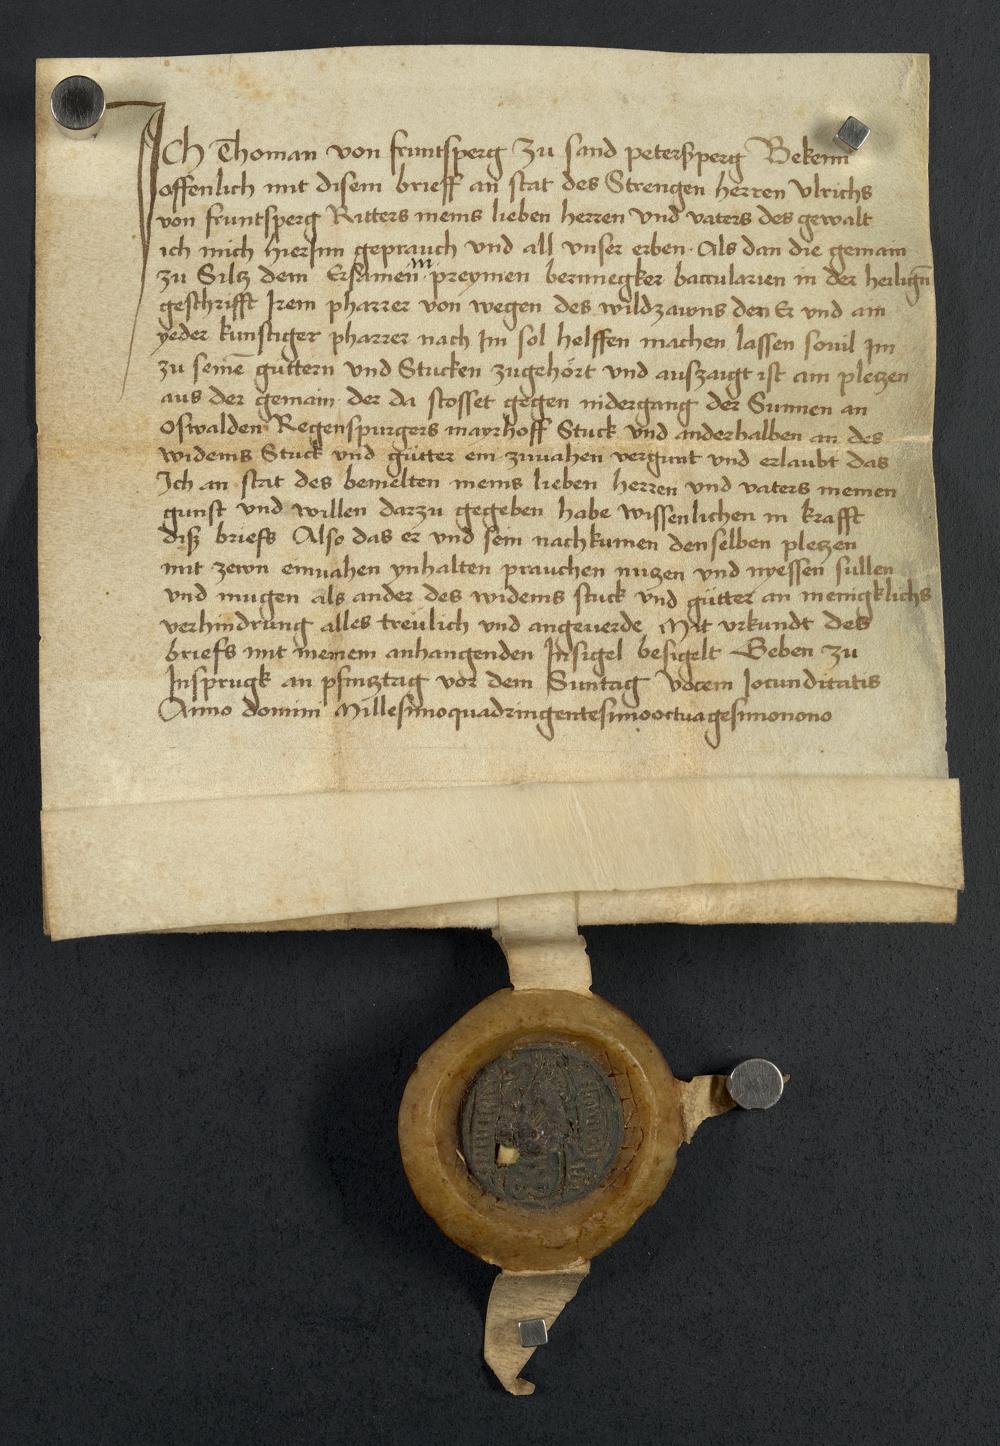 ICh Thoman von fruntsperg Zu sand petersperg Bekenn
offenlich mit disem brieff an stat des Strengen herren Vlrichs
von fruntsperg Ritters meins lieben herren vnd vaters des gewalt
ich mich hierInn geprauch vnd all vnser erben · Als dan die gemain
zu Siltz dem Ersamen preymen bernnegker baccularien in der heilign̄
geschrifft Irem pharrer von wegen des wildzawns den Er vnd ain
yeder kunftiger pharrer nach Im sol helffen machen lassen souil Im
zu seinē guttern vnd Stucken zugehört vnd auszaigt ist ain pletzen
aus der gemain der da stosset gegen nidergang der Sunnen an
Oswalden Regenspurgers mayrhoff Stuck vnd anderhalben an des
widems Stuck vnd gütter ein zuuahen vergunt vnd erlaubt das
Ich an stat des bemelten meins lieben herren vnd vaters meinen
gunst vnd willen darzu gegeben habe wissenlichen in krafft
diß briefs Also das er vnd sein nachkumen denselben pletzen
mit zewn einuahen ynhalten prauchen nutzen vnd nyessen sullen
vnd mugen als ander des widems stuck vnd gütter an menigklichs
verhindrung alles treulich vnd angeuerde Mit vrkundt des
briefs mit meinem anhangenden Insigel besigelt Geben zu
Insprugk an pfintztag vor dem Suntag Vocem Jocunditatis
Anno domini Millesimoquadringentesimooctuagesimonono